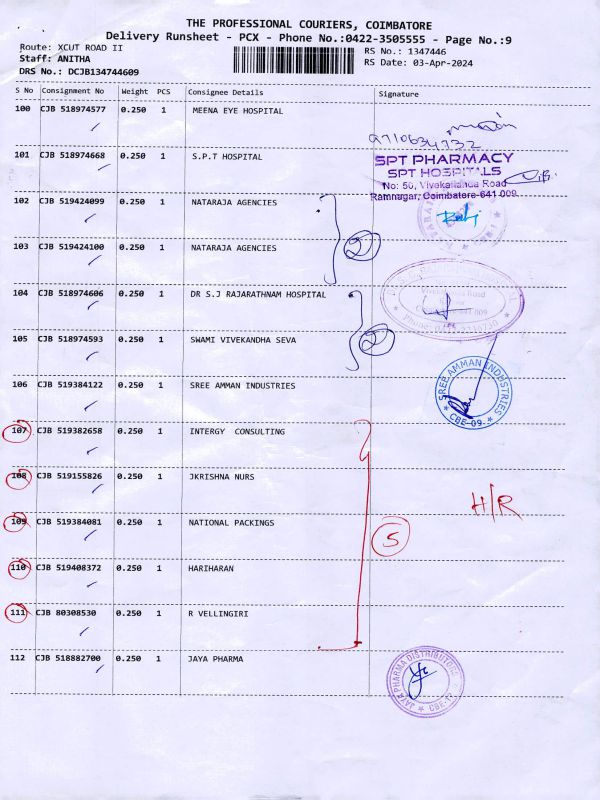 THE PROFESSIONAL COURIERS, COIMBATORE
Delivery Runsheet - PCX - Phone No.:0422-3505555 - Page No.:9
Route: XCUT ROAD II
RS No.: 1347446
Staff: ANITHA
RS Date: 03-Apr-2024
DRS No.: DCJB134744609
S No Consignment No Weight PCS Consignee Details Signature
100 CJB 518974577 0.250 1 MEENA EYE HOSPITAL
9710634732
101 CJB 518974668 0.250 1 S.P.T HOSPITAL
SPT PHARMACY
SPT HOSPITALS
No: 50, Vivekananda Road
Ramnagar, Coimbatore-641 009
102 CJB 519424099 0.250 1 NATARAJA AGENCIES
2
103 CJB 519424100 0.250 1 NATARAJA AGENCIES
104 CJB 518974606 0.250 1 DR S.J RAJARATHNAM HOSPITAL
2
105 CJB 518974593 0.250 1 SWAMI VIVEKANDHA SEVA
106 CJB 519384122 0.250 1 SREE AMMAN INDUSTRIES
SREE AMMAN INDUSTRIES
CBE-09.
107 CJB 519382658 0.250 1 INTERGY CONSULTING
108 CJB 519155826 0.250 1 JKRISHNA NURS
H/R
109 CJB 519384081 0.250 1 NATIONAL PACKINGS
5
110 CJB 519408372 0.250 1 HARIHARAN
111 CJB 80308530 0.250 1 R VELLINGIRI
112 CJB 518882700 0.250 1 JAYA PHARMA
JAYA PHARMA DISTRIBUTORS